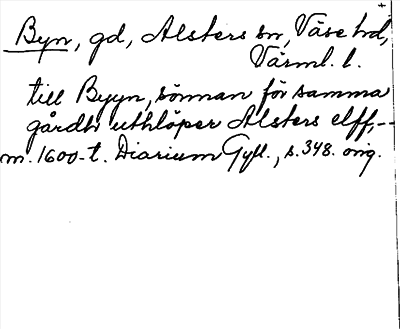 Byn, gd, Alsters sn, Väse hd,
Värml. l.
till Byyn, sönnan för samma
gårdh uthlöper Alsters elff,--
m. 1600-t. Diarium Gyll., s. 348. orig.